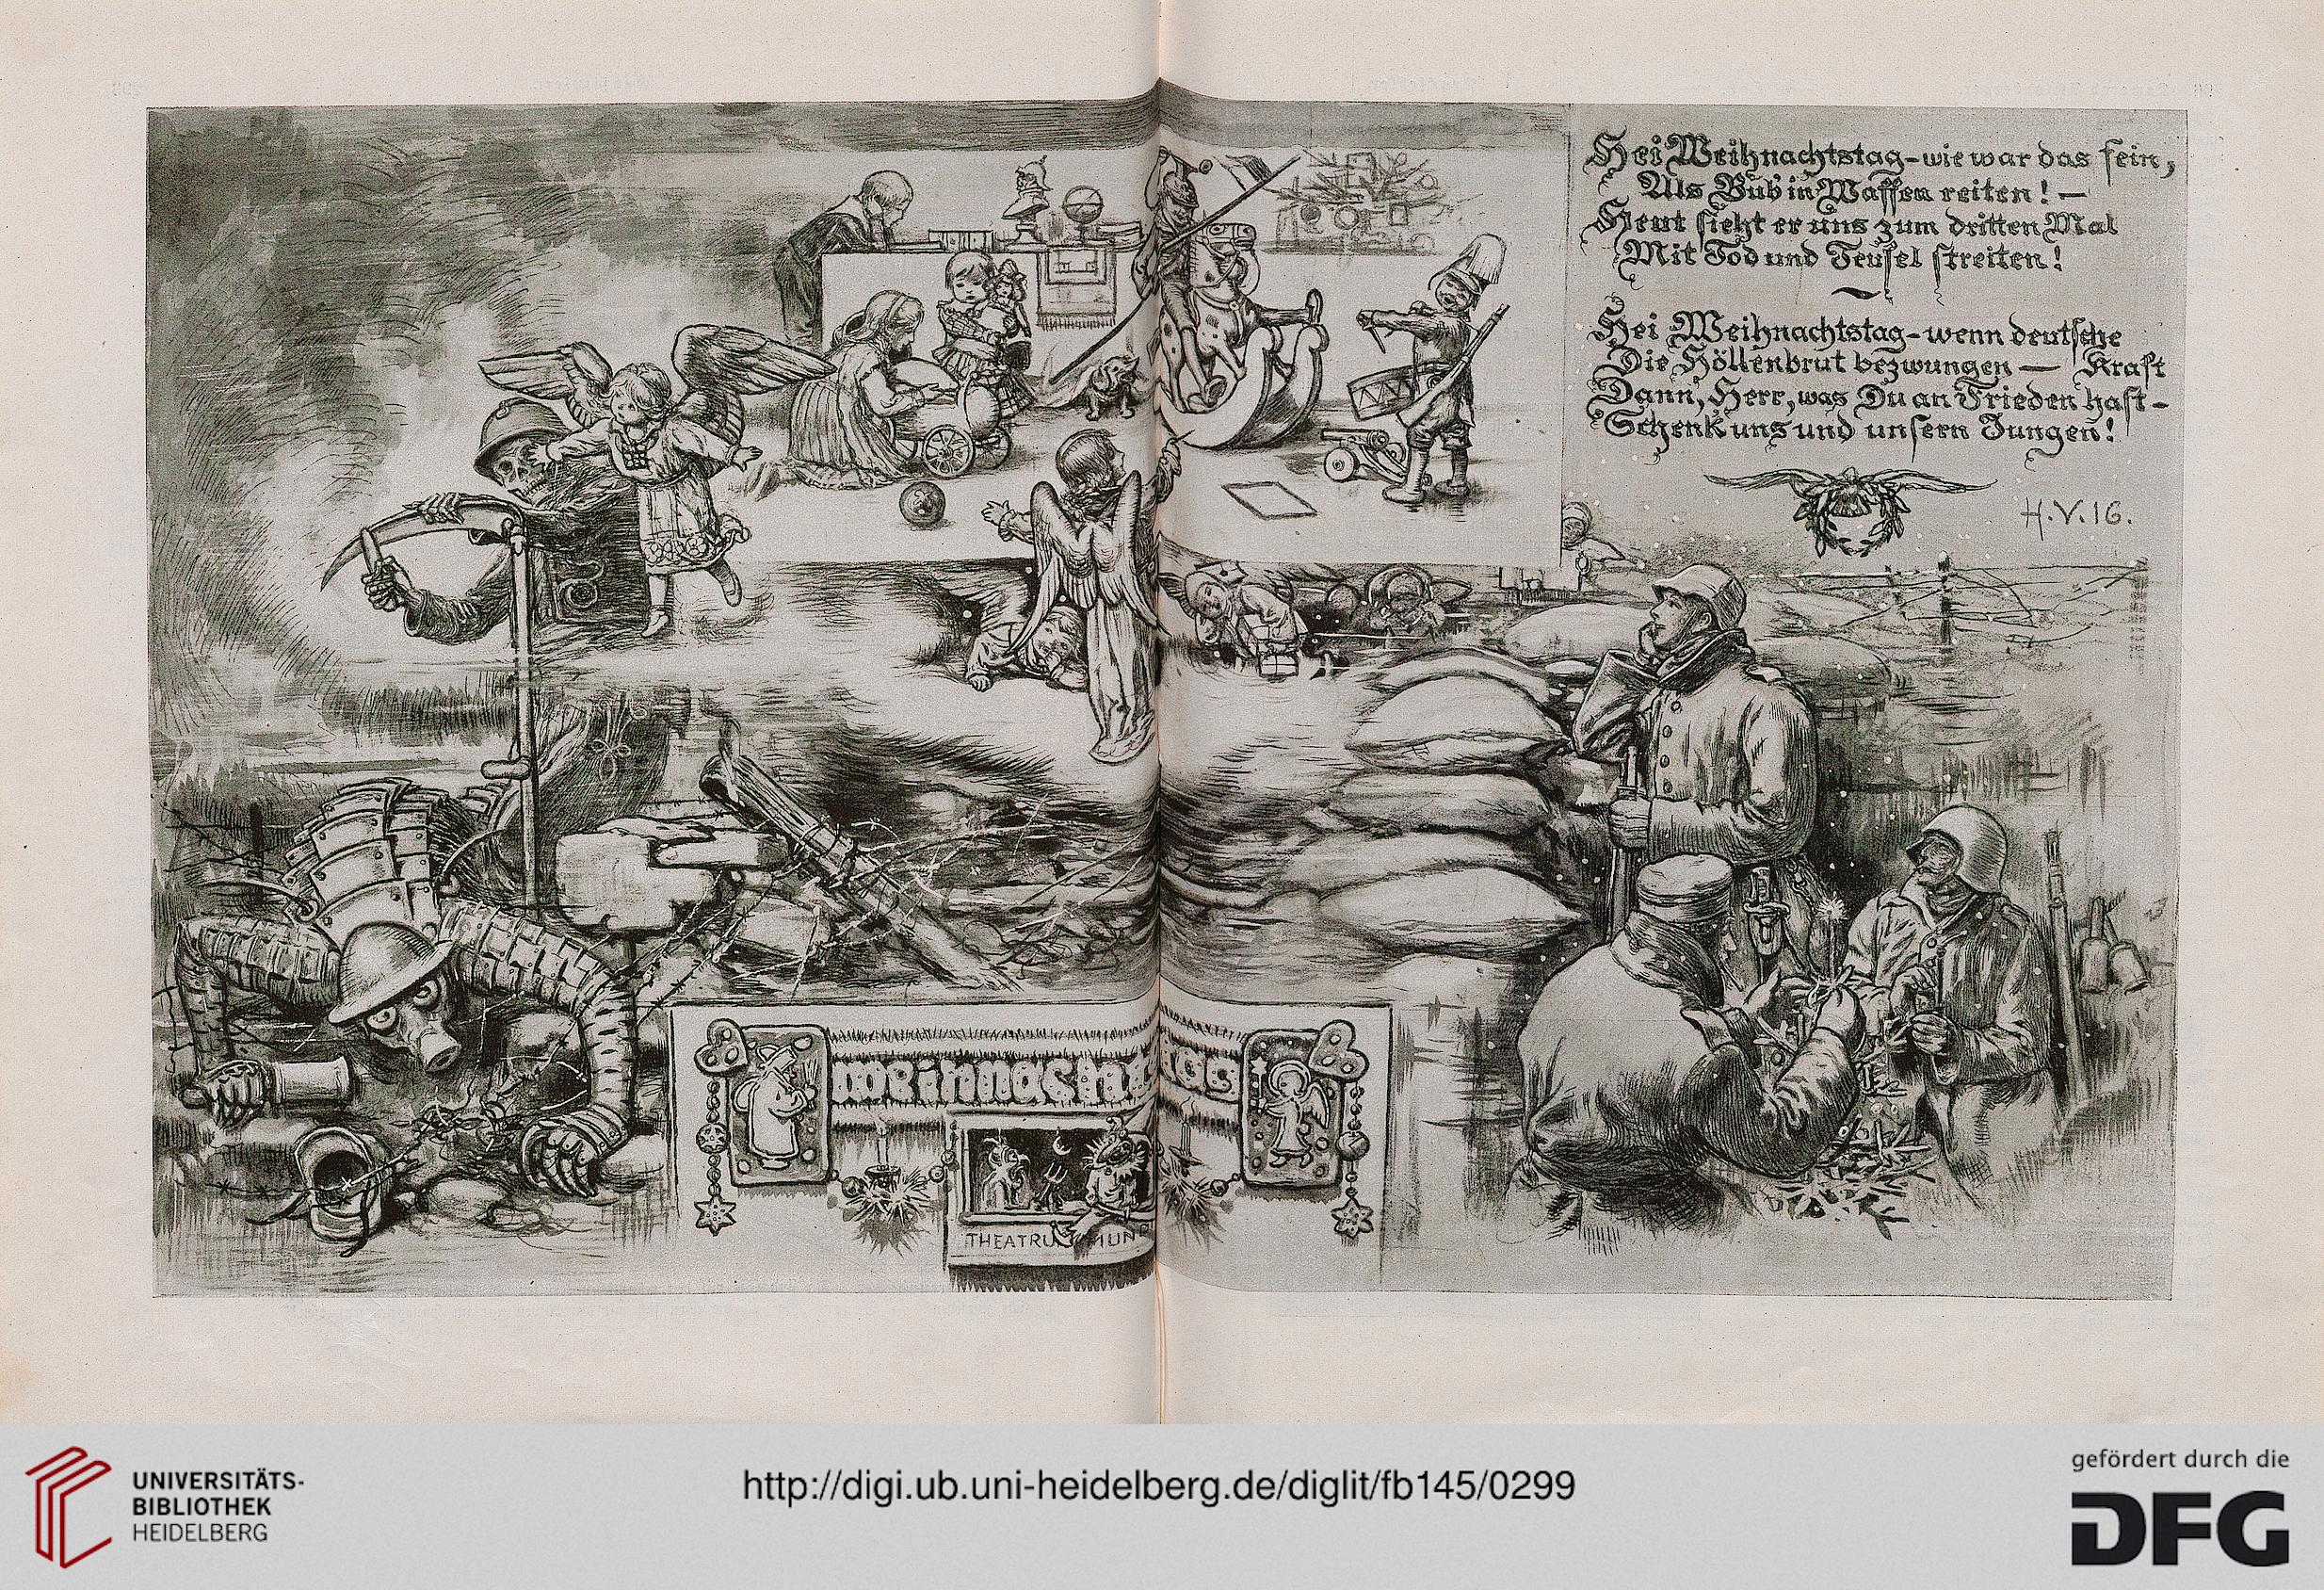 Hei Weihnachtstag - wie war das fein,
Als Bub in Waffen reiten! —
Heut sieht er uns zum dritten Mal
Mit Tod und Teufel streiten!
Hei Weihnachtstag - wenn deutsche
Die Höllenbrut bezwungen — Kraft
Dann, Herr, was Du an Frieden hast -
Schenk uns und unsern Jungen!
H.V.16.
Weihnachtstag
THEATRU MUN
UNIVERSITÄTS-
BIBLIOTHEK
HEIDELBERG
http://digi.ub.uni-heidelberg.de/diglit/fb145/0299
gefördert durch die
DFG